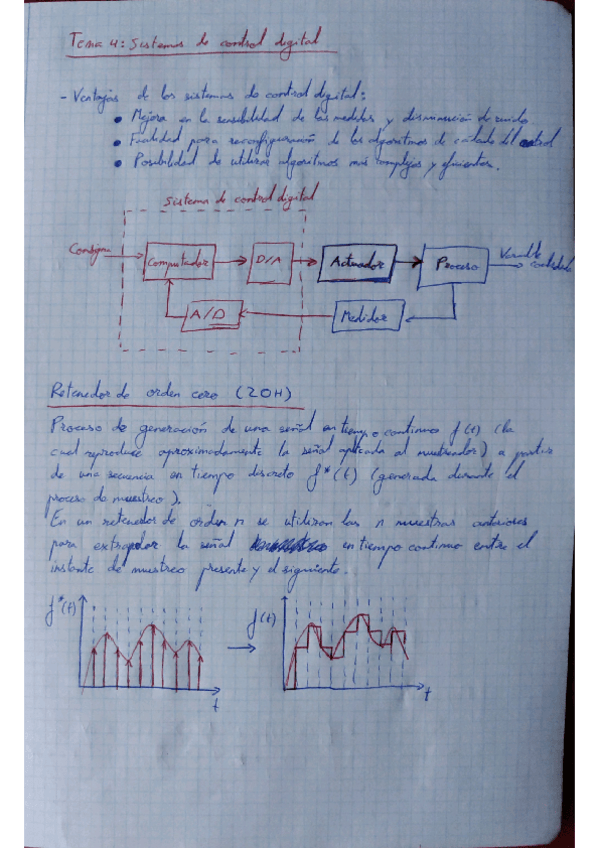 Tema 4: Sistemas de control digital
- Ventajas de los sistemas de control digital:
• Mejora en la sensibilidad de las medidas y disminución de ruido
• Facilidad para reconfiguración de los algoritmos de cálculo del control
• Posibilidad de utilizar algoritmos más complejos y eficientes.
Sistema de control digital
Consigna
Computador
D/A
Actuador
Proceso
Variable controlada
A/D
Medidor
Retenedor de orden cero (ZOH)
Proceso de generación de una señal en tiempo continuo f(t) (la
cual reproduce aproximadamente la señal aplicada al muestreador) a partir
de una secuencia en tiempo discreto f*(t) (generada durante el
proceso de muestreo).
En un retenedor de orden n se utilizan las n muestras anteriores
para extrapolar la señal en tiempo continuo entre el
instante de muestreo presente y el siguiente.
f*(t)
t
f(t)
t